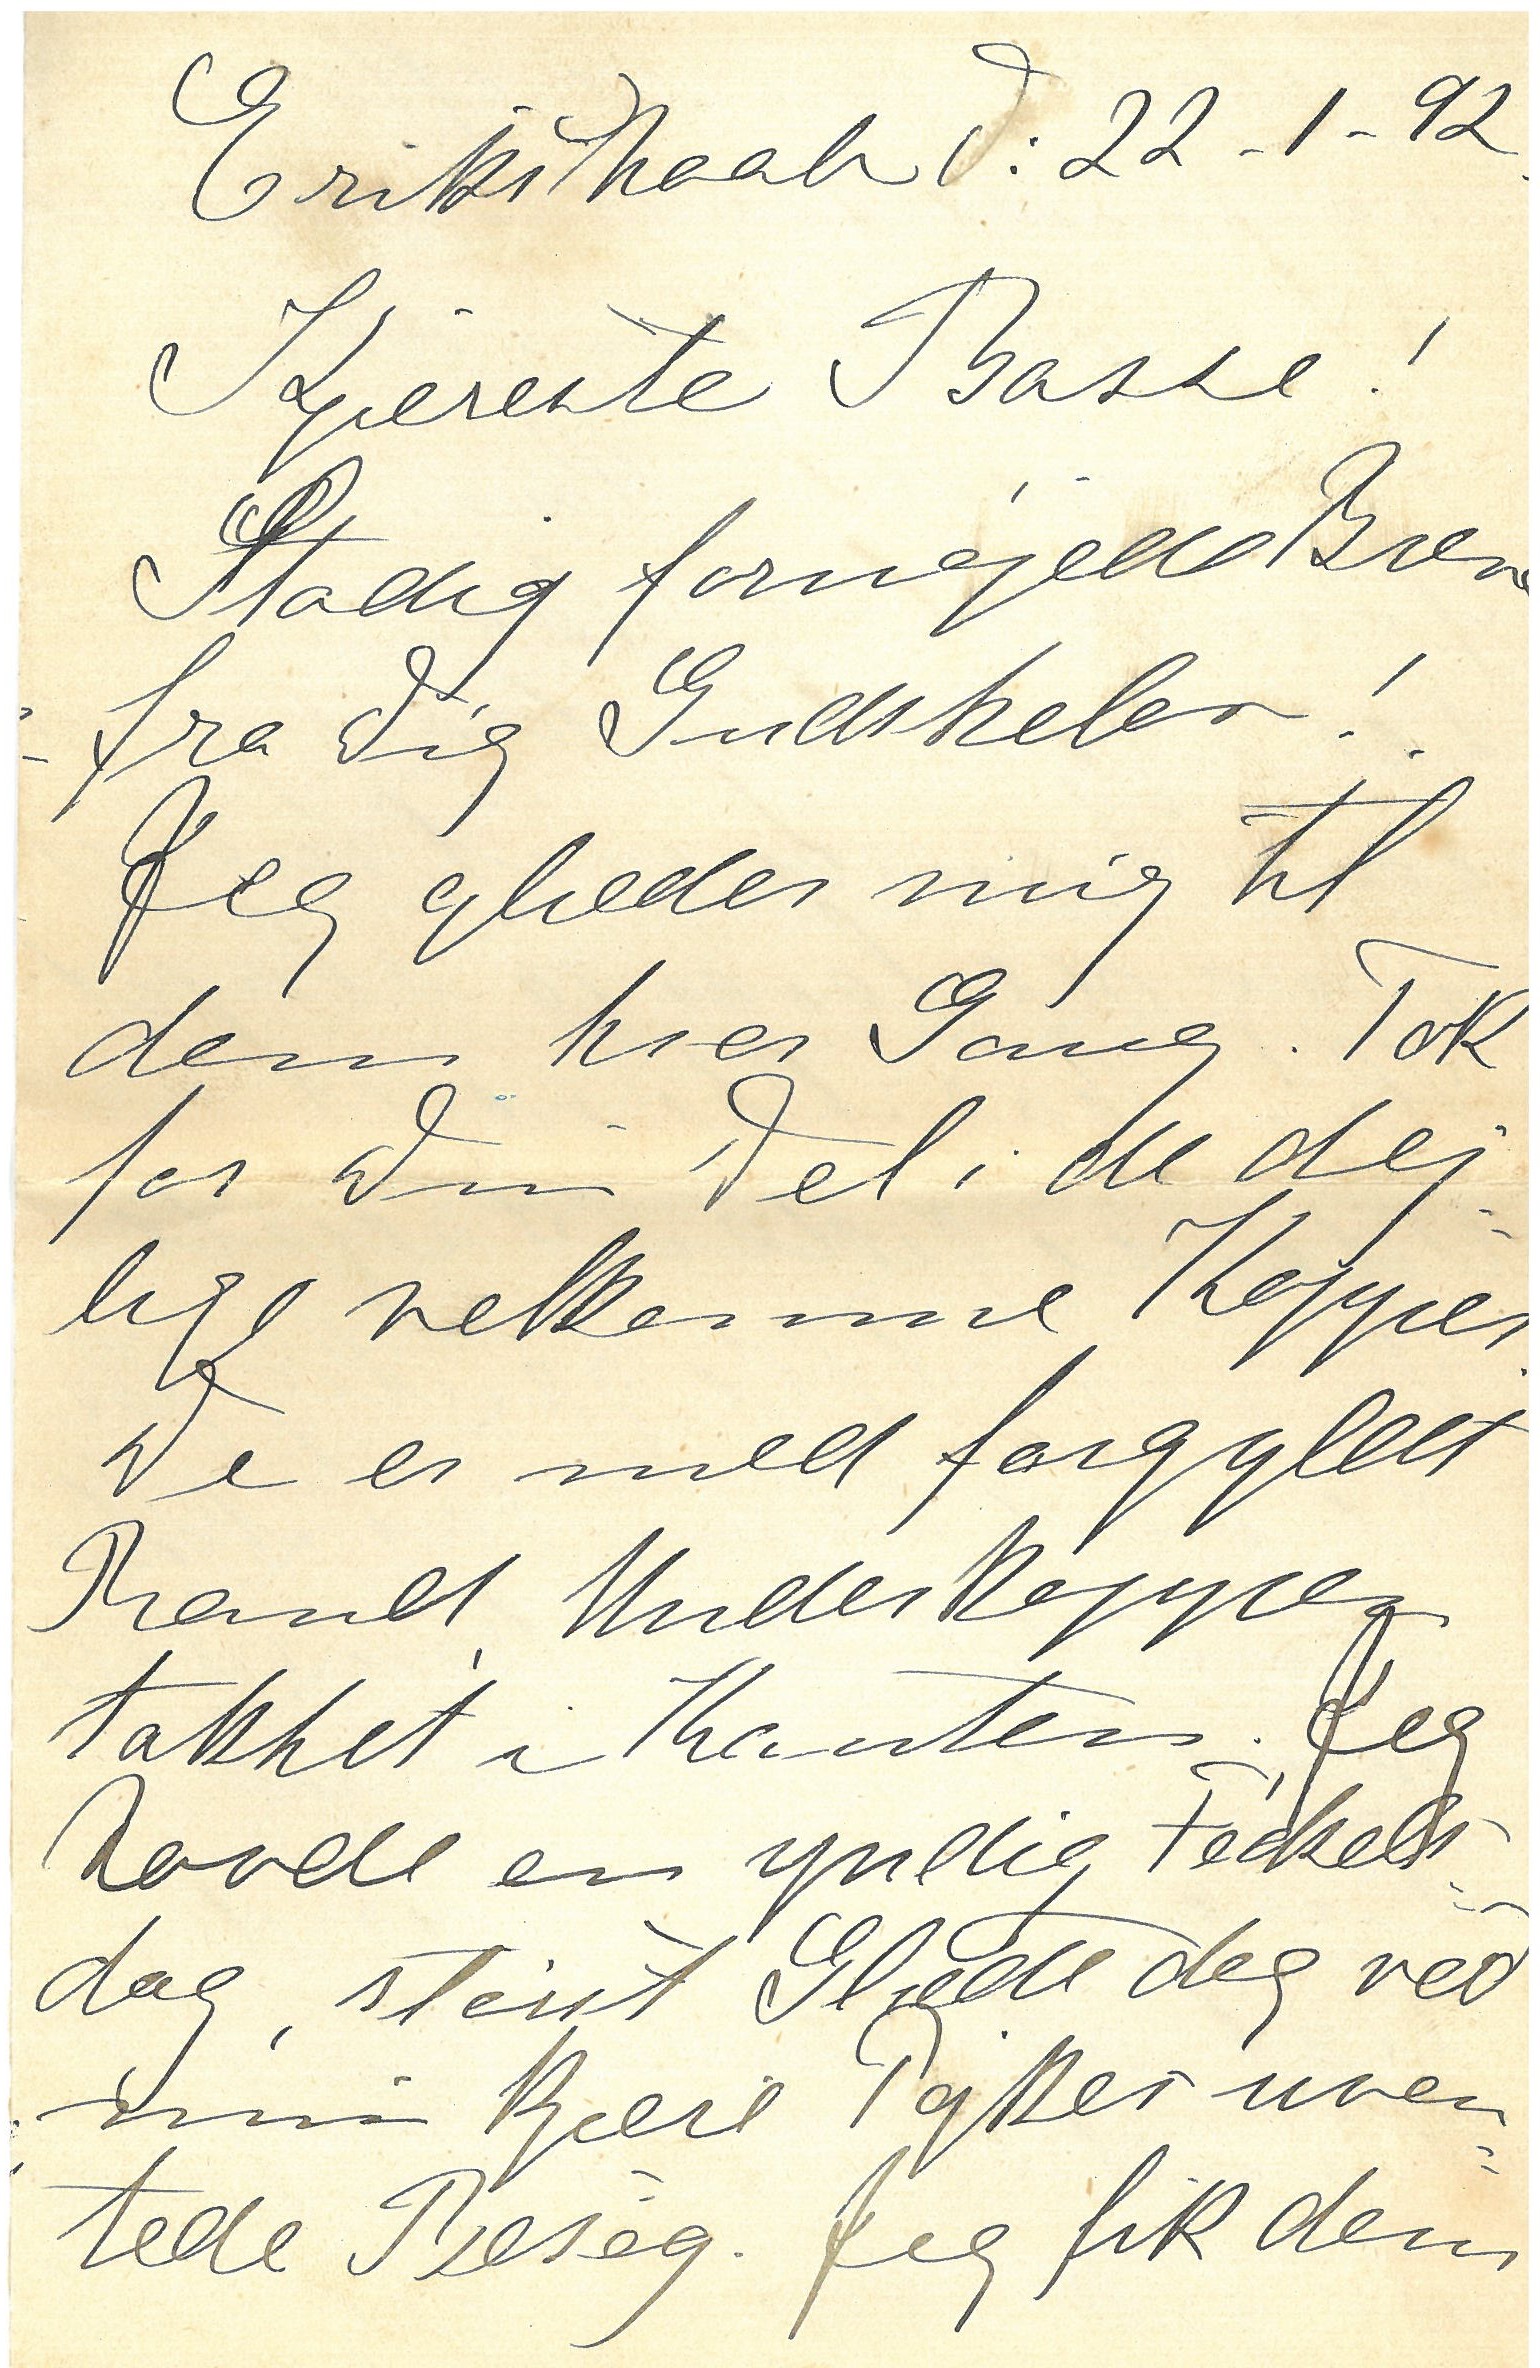 Erikshaab d: 22-1-92.
Kjæreste Basse!
Stadig fornøjede Breve
fra Dig Gudskelov!
Jeg glæder mig til
dem hver Gang. Tak
for Din Del i de dej-
lige velkomne Kopper.
De er med forgyldt
Rand, Underkoppen
takket i Kanten. Jeg
havde en yndig Fødsels-
dag, størst Glæde dog ved
min kjære Tykkes uven-
tede Besøg. Jeg fik dem